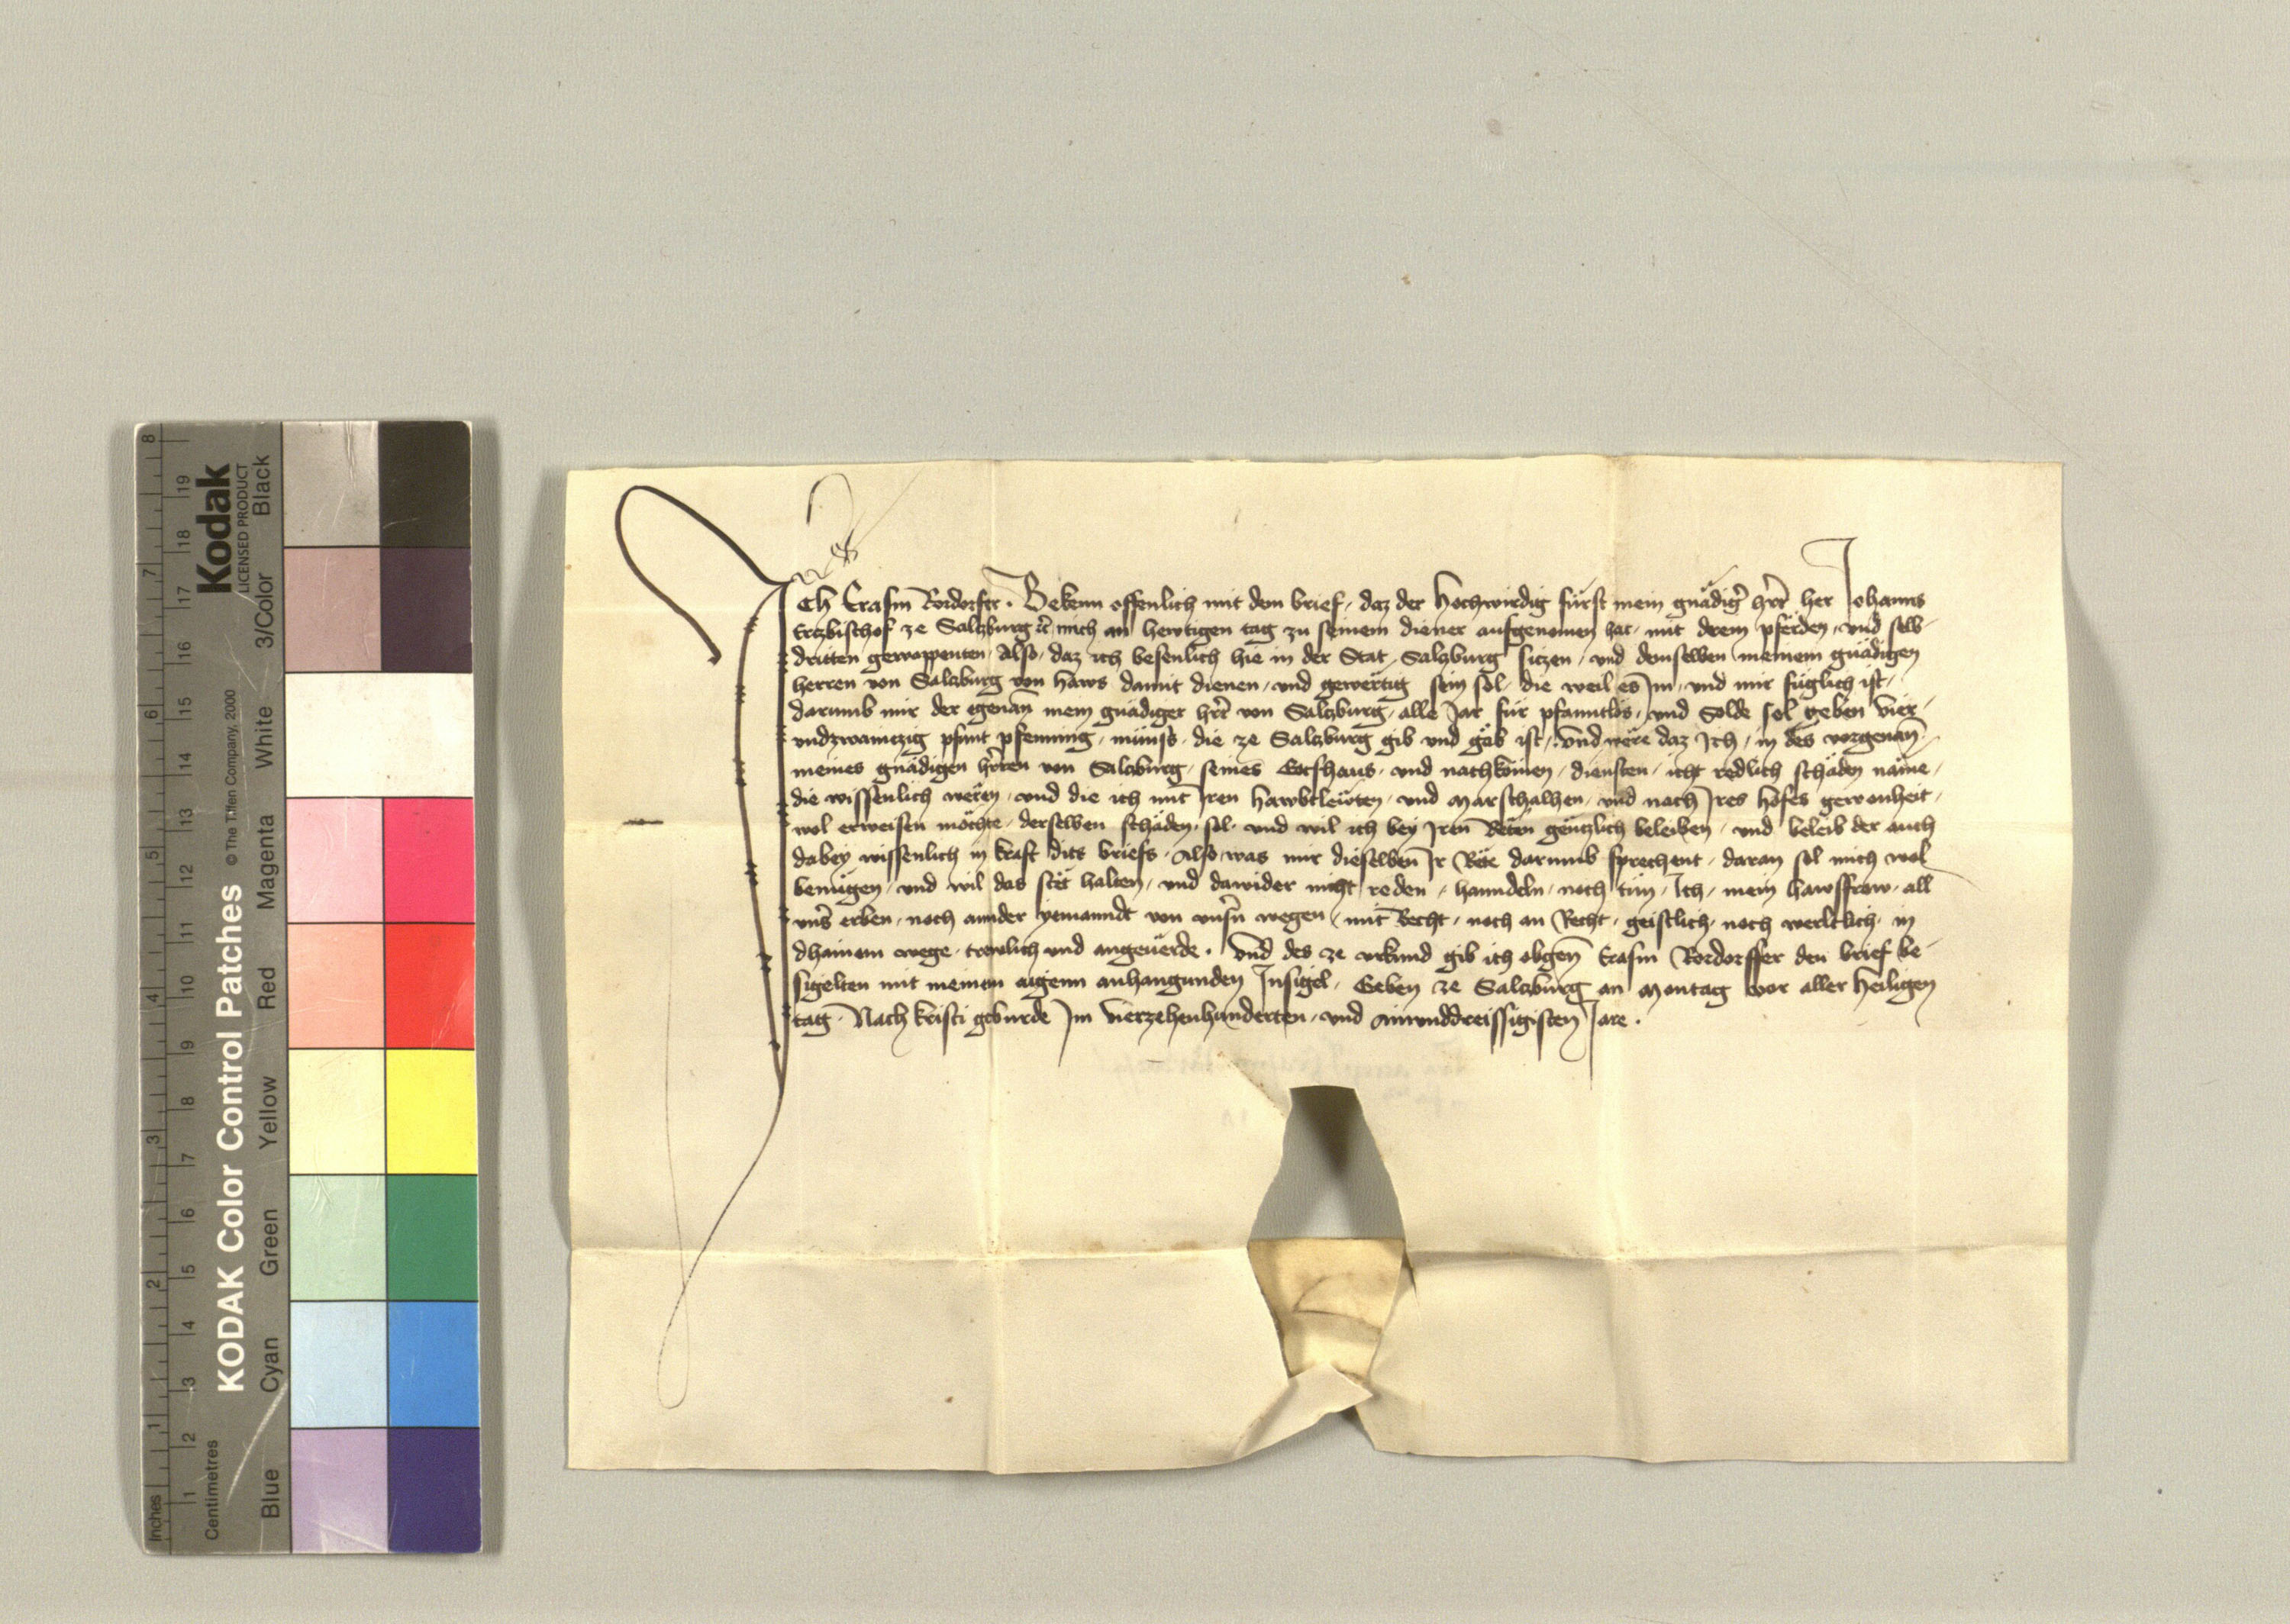 Ich Erasm Rordorffer. Bekenn offenlich mit dem brief, daz der Hochwirdig fürst mein gnädiger herr her Johanns
Ertzbischof ze Salzburg etc mich an hewtigen tag zu seinem diener aufgenomen hat, mit drein pferden, und selb
dritten gewappenten, Also, daz ich besenlich hie in der Stat Salzburg sitzen, und demselben meinem gnädigen
herren von Salzburg von haws damit dienen, und gewertig sein sol, die weil es Im, und mir füglich ist,
darumb mir der egenan mein gnädiger herr von Salzburg, alle Jar für pfanntlos, und Solde sol geben vier
undzwaintzig phunt pfenning, münss, die ze Salzburg gib und gäb ist, Und wëre daz Ich, in des vorgenan
meines gnädigen herren von Salzburg, seines Gotshaus, und nachkomen, diensten, icht redlich schäden näme,
die wissenlich wëren, und die ich mit Iren hawbtlewten, und Marschalhen, und nach Ires hofes gewonheit,
wol erweisen möchte, derselben schäden, sol, und wil ich bey Iren Reten gëntzlich beleiben, und beleib der auch
dabey wissenlich in kraft dits briefs, Also, was mir dieselben Ir Rëte darumb sprechent, daran sol mich wol
benügen, und wil das stët halten, und dawider nicht reden, hanndeln, noch tun, Ich, mein hawsfrow, all
unser erben, noch annder yemanndt von unsern wegen, mit Recht, noch an Recht, geistlich, noch werltlich, in
dhainem wege, trewlich und angeuërde. Und des ze urkund gib ich obgen Erasm Rordorffer den brief be
sigelten mit meinem aigenn anhangunden Insigel, Geben ze Salzburg an Montag vor aller Heiligen
tag. Nach kristi geburde Im vierzehenhunderten, und ainunddreissigisten Jare.
KODAK Color Control Patches © The Tiffen Company, 2000
Kodak
LICENSED PRODUCT
Inches 1 2 3 4 5 6 7 8
Centimetres 1 2 3 4 5 6 7 8 9 10 11 12 13 14 15 16 17 18 19
Blue Cyan Green Yellow Red Magenta White 3/Color Black